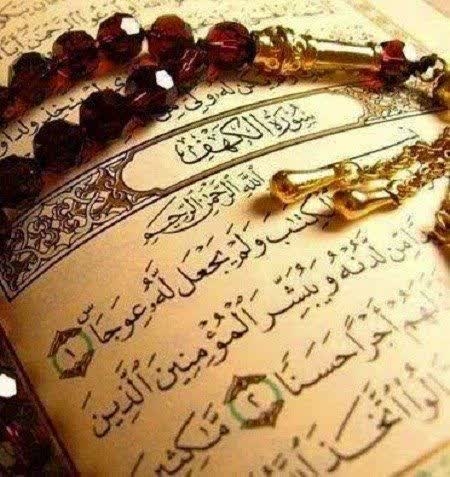 سُورَةُ الْكَهْفِ
اللَّهِ الرَّحْمَنِ الرَّحِيمِ
الْكِتَبَ وَلَمْ يَجْعَل لَّهُ عِوَجَا ۜ ١
مِّن لَّدُنْهُ وَيُبَشِّرَ الْمُؤْمِنِينَ الَّذِينَ
لَهُمْ أَجْرًا حَسَنًا ٢ مَّكِثِينَ
اتَّخَذَ اللَّهُ